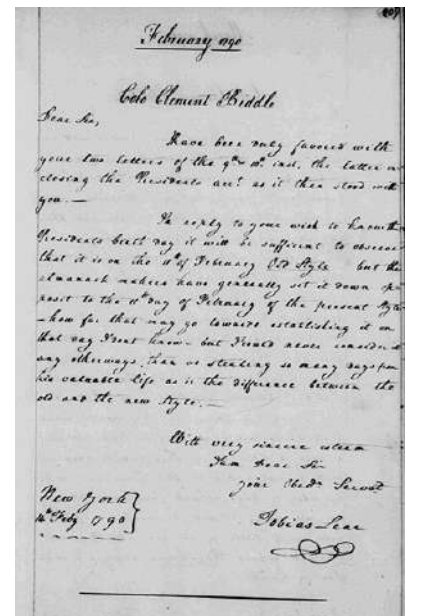 207
February 1790
Colo Clement Biddle
Dear Sir,
Have been duly favored with
your two letters of the 9th & 10th inst, the latter in
closing the Presidents acct as it then stood with
you.—
In reply to your wish to know the
Presidents birth day it will be sufficient to observe
that it is on the 11th of February Old Style but the
almanack makers have generally set it down op
posit to the 11th day of February of the present Style
— how far that may go towards establishing it on
that day I dont know — but I could never consider it
any otherways than as stealing so many days from
his valuable life as is the difference between the
old and the new Style.—
With very sincere esteem
I am Dear Sir
your Obedt Servat
Tobias Lear
New York
14th Feby 1790